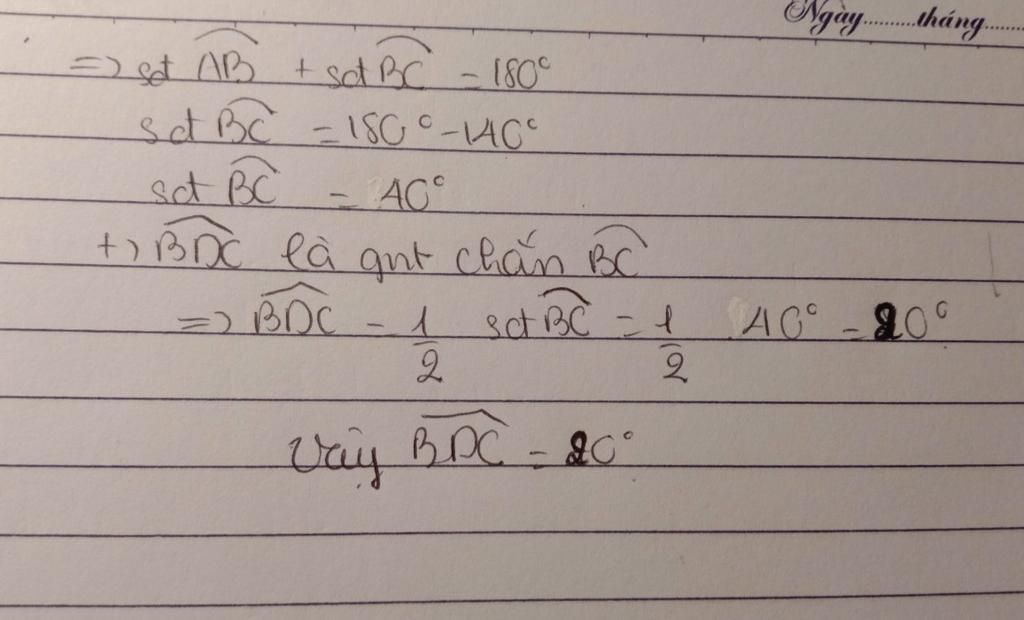 Ngày.........tháng.......
=> sđ AB + sđ BC = 180°
sđ BC = 180° - 140°
sđ BC = 40°
+) BDC là gnt chắn BC
=> BDC = 1/2 sđ BC = 1/2 . 40° = 20°
Vậy BDC = 20°